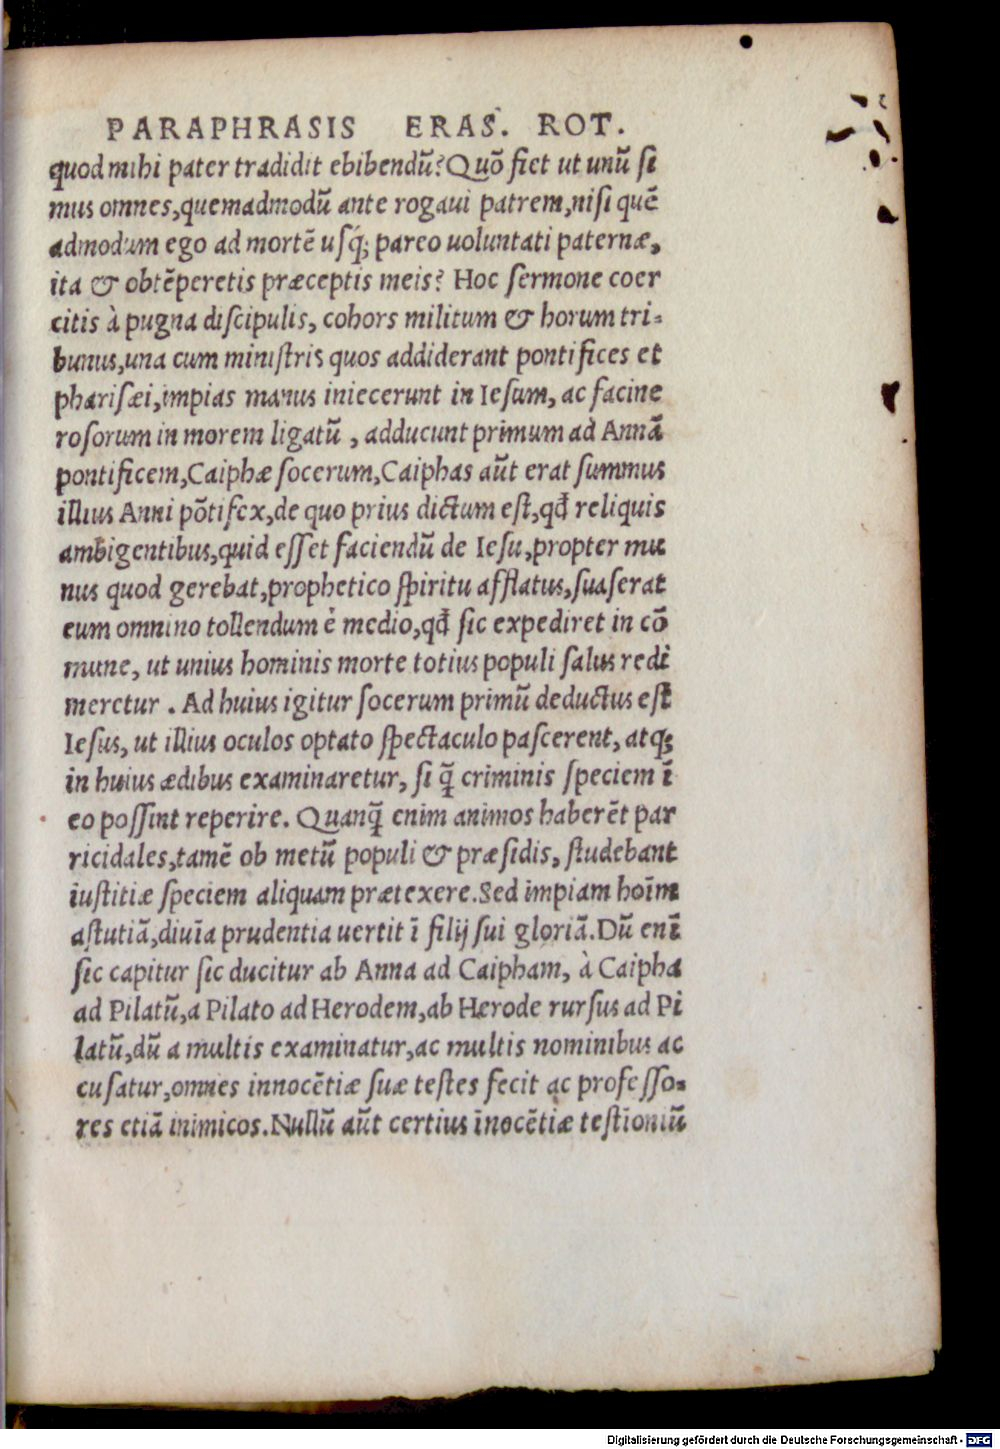 PARAPHRASIS ERAS. ROT.
quod mihi pater tradidit ebibendũ? Quõ fiet ut unũ si
mus omnes, quemadmodũ ante rogaui patrem, nisi quẽ
admodum ego ad mortẽ usq́; pareo uoluntati paternæ,
ita & obtẽperetis præceptis meis? Hoc sermone coer
citis à pugna discipulis, cohors militum & horum tri-
bunus, una cum ministris quos addiderant pontifices et
pharisæi, impias manus iniecerunt in Iesum, ac facine
rosorum in morem ligatũ, adducunt primum ad Annã
pontificem, Caiphæ socerum, Caiphas aũt erat summus
illius Anni põtifex, de quo prius dictum est, qđ reliquis
ambigentibus, quid esset faciendũ de Iesu, propter mu
nus quod gerebat, prophetico spiritu afflatus, suaserat
eum omnino tollendum è medio, qđ sic expediret in cõ
mune, ut unius hominis morte totius populi salus redi
meretur. Ad huius igitur socerum primũ deductus est
Iesus, ut illius oculos optato spectaculo pascerent, atq;
in huius ædibus examinaretur, si q̃ criminis speciem ĩ
eo possint reperire. Quanq̃ enim animos haberẽt par
ricidales, tamẽ ob metũ populi & præsidis, studebant
iustitiæ speciem aliquam prætexere. Sed impiam hoĩm
astutiã, diuĩa prudentia uertit ĩ filij sui gloriã. Dũ enĩ
sic capitur sic ducitur ab Anna ad Caipham, à Caipha
ad Pilatũ, a Pilato ad Herodem, ab Herode rursus ad Pi
latũ, dũ a multis examinatur, ac multis nominibus ac
cusatur, omnes innocẽtiæ suæ testes fecit ac professo-
res etiã inimicos. Nullũ aũt certius ĩnocẽtiæ testĩoniũ
Digitalisierung gefördert durch die Deutsche Forschungsgemeinschaft - DFG